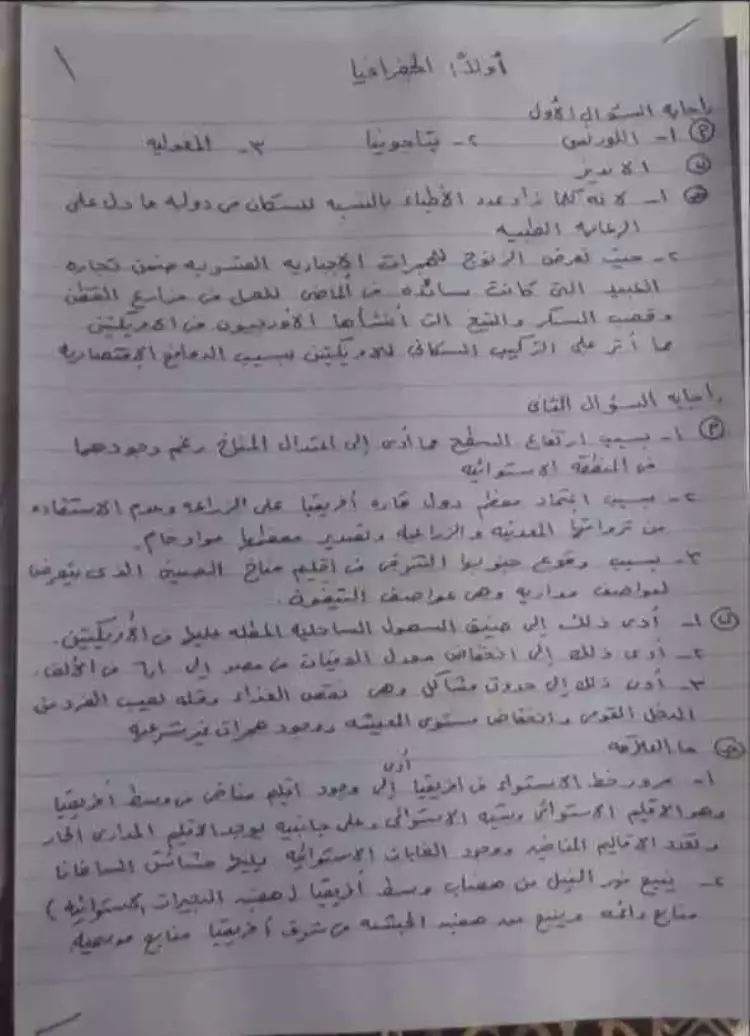 أولاً: الجغرافيا
إجابه السؤال الأول
(أ) ١- اللورنس ٢- بتاجونيا ٣- المغوليه
(ب) الانديز
(ج) ١- لانه كلما زاد عدد الأطباء بالنسبه للسكان فى دوله ما دل على
الرعايه الطبيه
٢- حيث تعرض الزنوج للهجرات الإجباريه ضمن تجاره
العبيد التى كانت سائده فى الماضى للعمل فى مزارع القطن
وقصب السكر والتبغ التى أنشأها الأوربيون فى الامريكتين
مما أثر على التركيب السكانى للامريكتين بسبب الدوافع الإقتصاديه
إجابه السؤال الثانى
(أ) ١- بسبب ارتفاع السطح مما أدى إلى اعتدال المناخ رغم وجودهما
فى المنطقه الاستوائيه
٢- بسبب اعتماد معظم دول قاره أفريقيا على الزراعه وعدم الاستفاده
من ثرواتها المعدنيه والزراعيه وتصدير معظمها مواد خام.
٣- بسبب وقوع جنوبها الشرقى فى اقليم مناخ الصينى الذى يتعرض
لعواصف مداريه وهى عواصف التيفون.
(ب) ١- أدى ذلك إلى ضيق السهول الساحليه المطله عليها فى الأمريكتين.
٢- أدى ذلك إلى انخفاض معدل الوفيات فى مصر إلى ٦,١ فى الألف.
٣- أدى ذلك إلى حدوث مشاكل وهى نقص الغذاء وقله نصيب الفرد من
الدخل القومى وانخفاض مستوى المعيشه ووجود هجرات غير شرعيه
(ج) ما العلاقه
١- مرور خط الاستواء فى افريقيا أدى إلى وجود اقليم مناخى فى وسط أفريقيا
وهو الاقليم الاستوائى وشبه الاستوائى وعلى جانبيه يوجد الاقليم المدارى الحار
وتعدد الاقاليم المناخيه ووجود الغابات الاستوائيه يليها حشائش السافانا
٢- ينبع نهر النيل من هضاب وسط أفريقيا (هضبه البحيرات الاستوائيه)
منابع دائمه وينبع من هضبه الحبشه فى شرق أفريقيا منابع موسميه